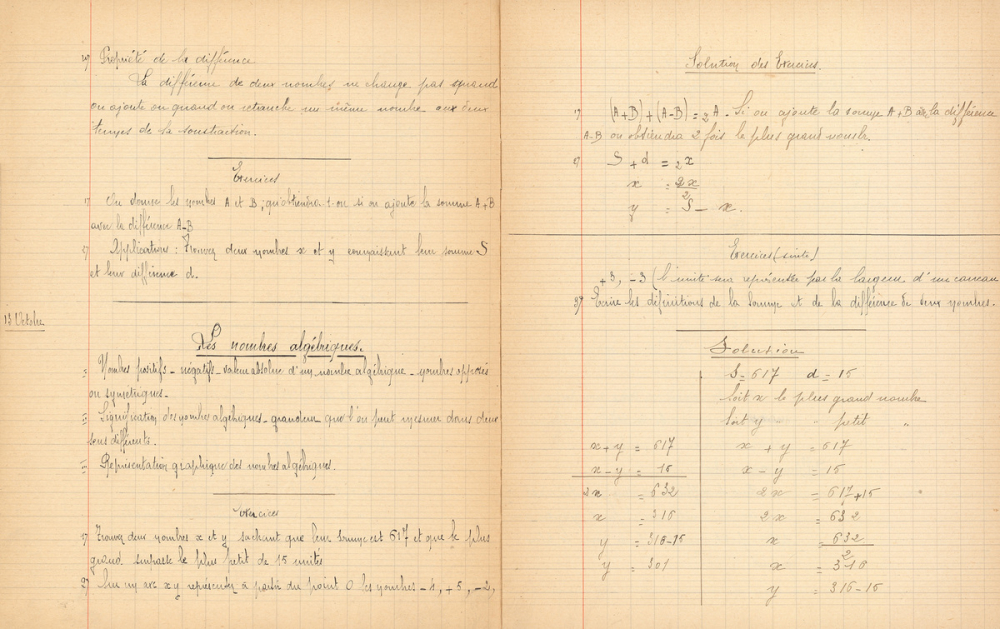 2°) Propriété de la différence
La différence de deux nombres ne change pas quand
on ajoute ou quand on retranche un même nombre aux deux
termes de la soustraction.
Exercices
1°) On donne les nombres A et B ; qu'obtiendra-t-on si on ajoute la somme A+B
avec la différence A-B
2°) Application : Trouver deux nombres x et y connaissant leur somme S
et leur différence d.
13 Octobre
Les nombres algébriques.
I Nombres positifs - négatifs - valeur absolue d'un nombre algébrique - nombres opposés
ou symétriques.
II Signification des nombres algébriques - grandeur que l'on peut mesurer dans deux
sens différents.
III Représentation graphique des nombres algébriques.
Exercices
1°) Trouver deux nombres x et y sachant que leur somme est 617 et que le plus
grand surpasse le plus petit de 15 unités
2°) Sur un axe x y représenter à partir du point O les nombres -4, +5, -2,
Solution des Exercices.
1°) (A+B) + (A-B) = 2A. Si on ajoute la somme A+B à la différence
A-B on obtiendra 2 fois le plus grand nombre.
2°) S + d = 2x
x = 2x
2
y = S - x.
Exercices (suite)
+3, -3 (l'unité sera représentée par la largeur d'un carreau
3°) Ecrire les définitions de la somme et de la différence de deux nombres.
Solution
S = 617 d = 15
Soit x le plus grand nombre
Soit y - - petit "
x + y = 617
x - y = 15
2x = 632
x = 316
y = 316-15
y = 301
x + y = 617
x - y = 15
2x = 617+15
2x = 632
x = 632
2
x = 316
y = 316-15